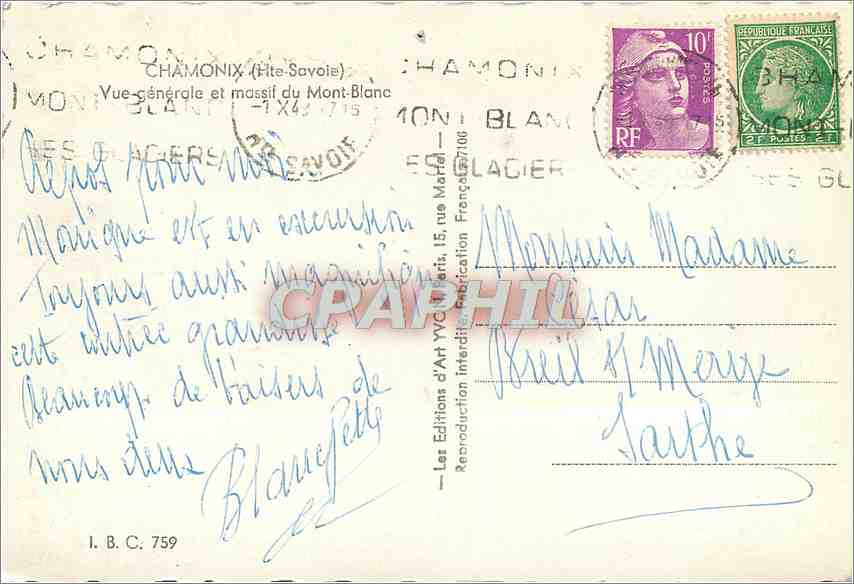 CHAMONIX
CHAMONIX (Hte-Savoie)
Vue générale et massif du Mont-Blanc
MONT BLANC
SES GLACIERS
-1 X 49 17 15
HTE SAVOIE
CHAMONIX
MONT BLANC
SES GLACIERS
10F
POSTES
RF
RÉPUBLIQUE FRANÇAISE
2F POSTES 2F
CHAM
MONT
SES GL
Repos pour moi
Monique est en excursion
Toujours aussi magnifique
cette entrée grandiose
Beaucoup de baisers de
nous deux
Blanchette
— Les Editions d'Art YVON, Paris, 15, rue Martel —
Reproduction interdite. Fabrication Française 7106
Monsieur Madame
Breil s/ Merize
Sarthe
I. B. C. 759
CPAPHIL